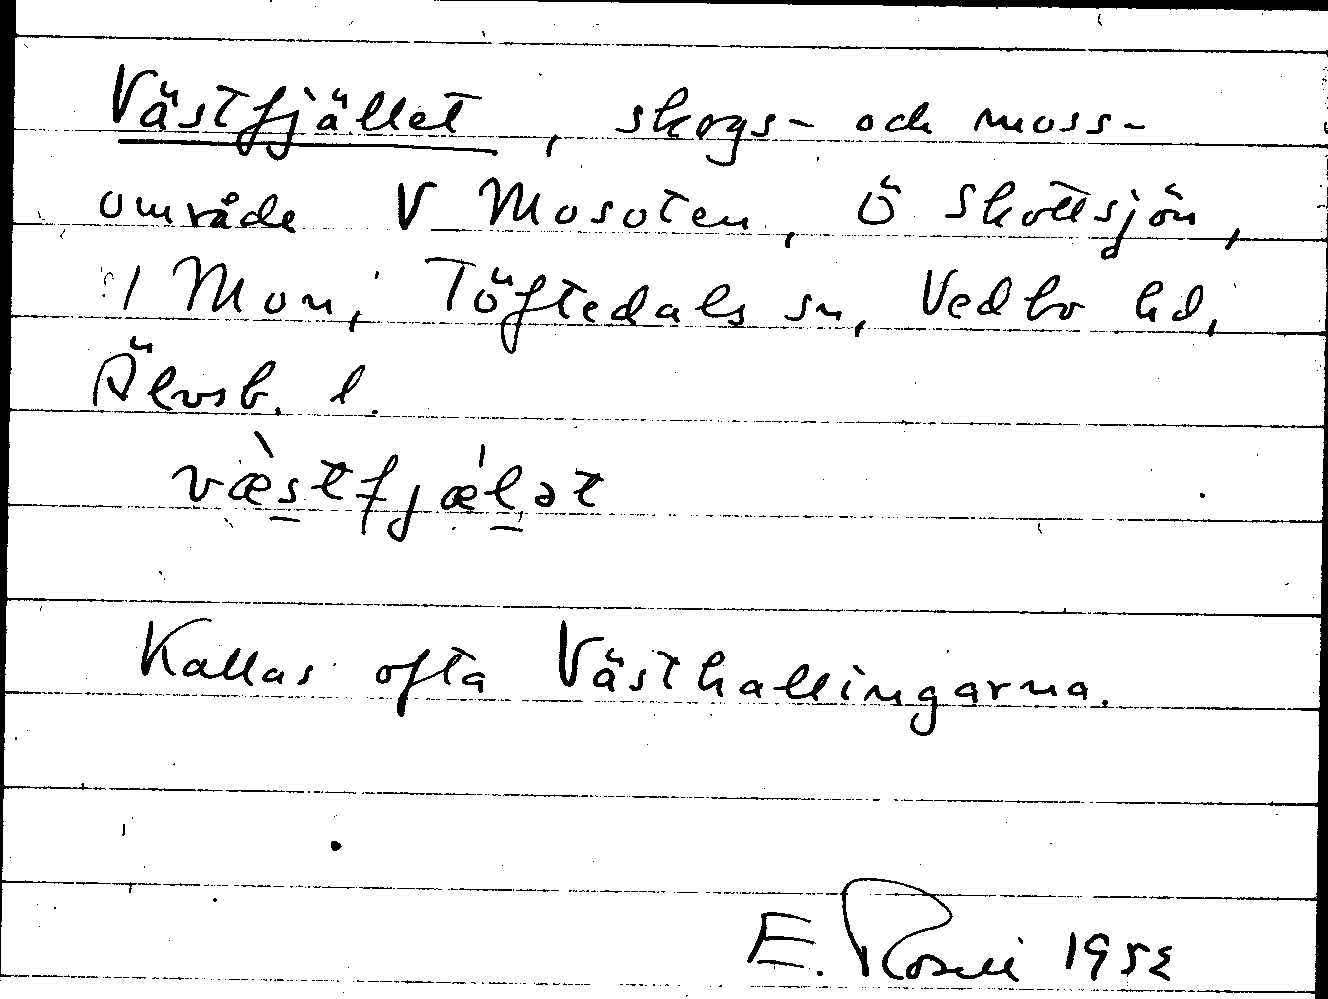 Västfjället, skogs- och moss-
område V Mosoten, Ö Skottsjön,
1 Mon, Töftedals sn, Vedbo hd,
Älvsb. l.
væ̀stfjǽlət
Kallas ofta Västhallingarna.
E. Rosell 1952